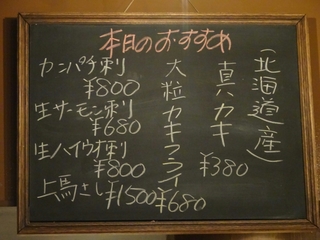 本日のおすすめ
(北海道産)
真カキ
¥380
大粒カキフライ
¥680
カンパチ刺
¥800
生サーモン刺
¥680
生ハイウオ刺
¥800
上馬さし¥1500